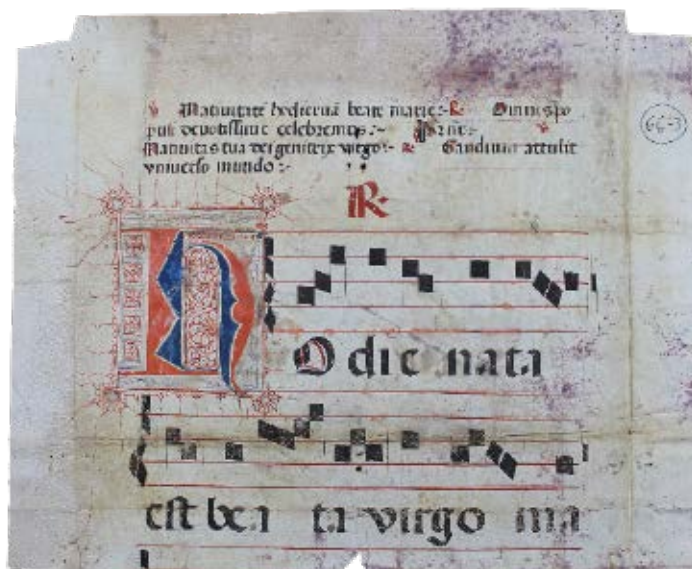 ℣ Natiuitatē hodiernā beate marie :- ℟ Omnis po
puli deuotissime celebremus :-
Natiuitas tua dei genitrix virgo :- ℟ Gaudium attulit
vniuerso mundo :-
℟
HOdie nata
est bea ta virgo ma